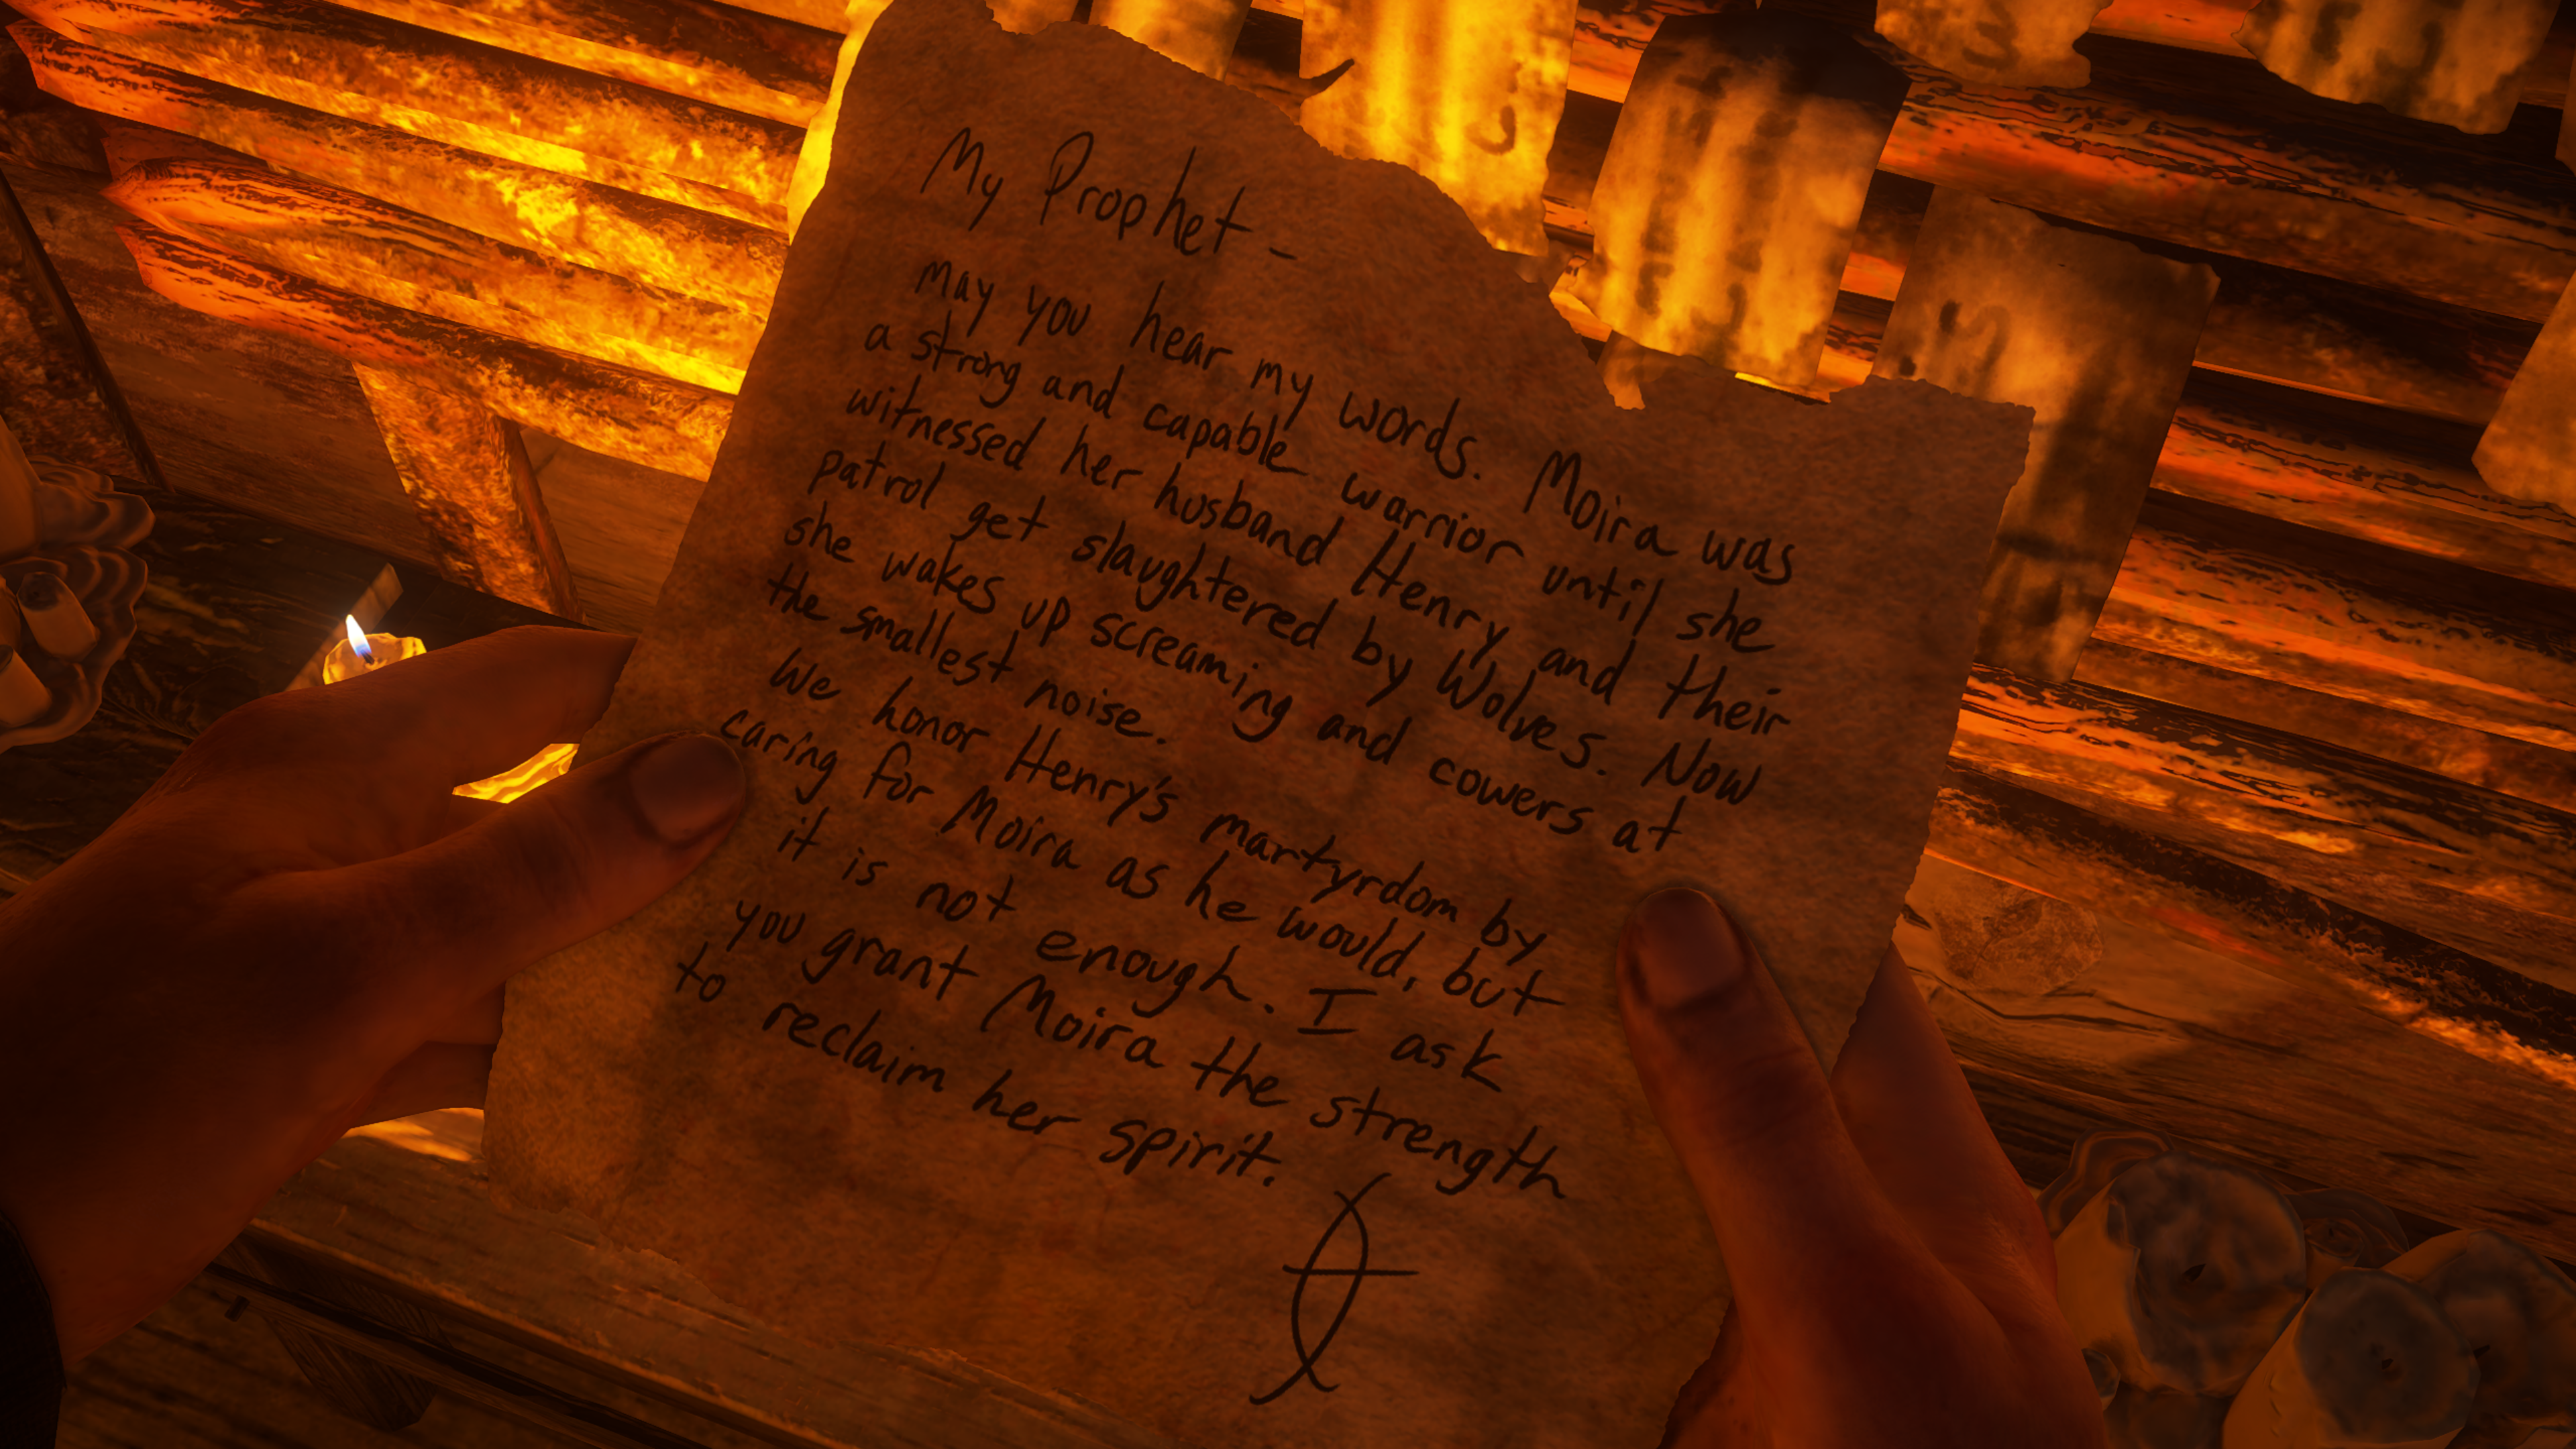 My Prophet -
May you hear my words. Moira was
a strong and capable warrior until she
witnessed her husband Henry and their
patrol get slaughtered by Wolves. Now
she wakes up screaming and cowers at
the smallest noise.
We honor Henry's martyrdom by
caring for Moira as he would, but
it is not enough. I ask
you grant Moira the strength
to reclaim her spirit.